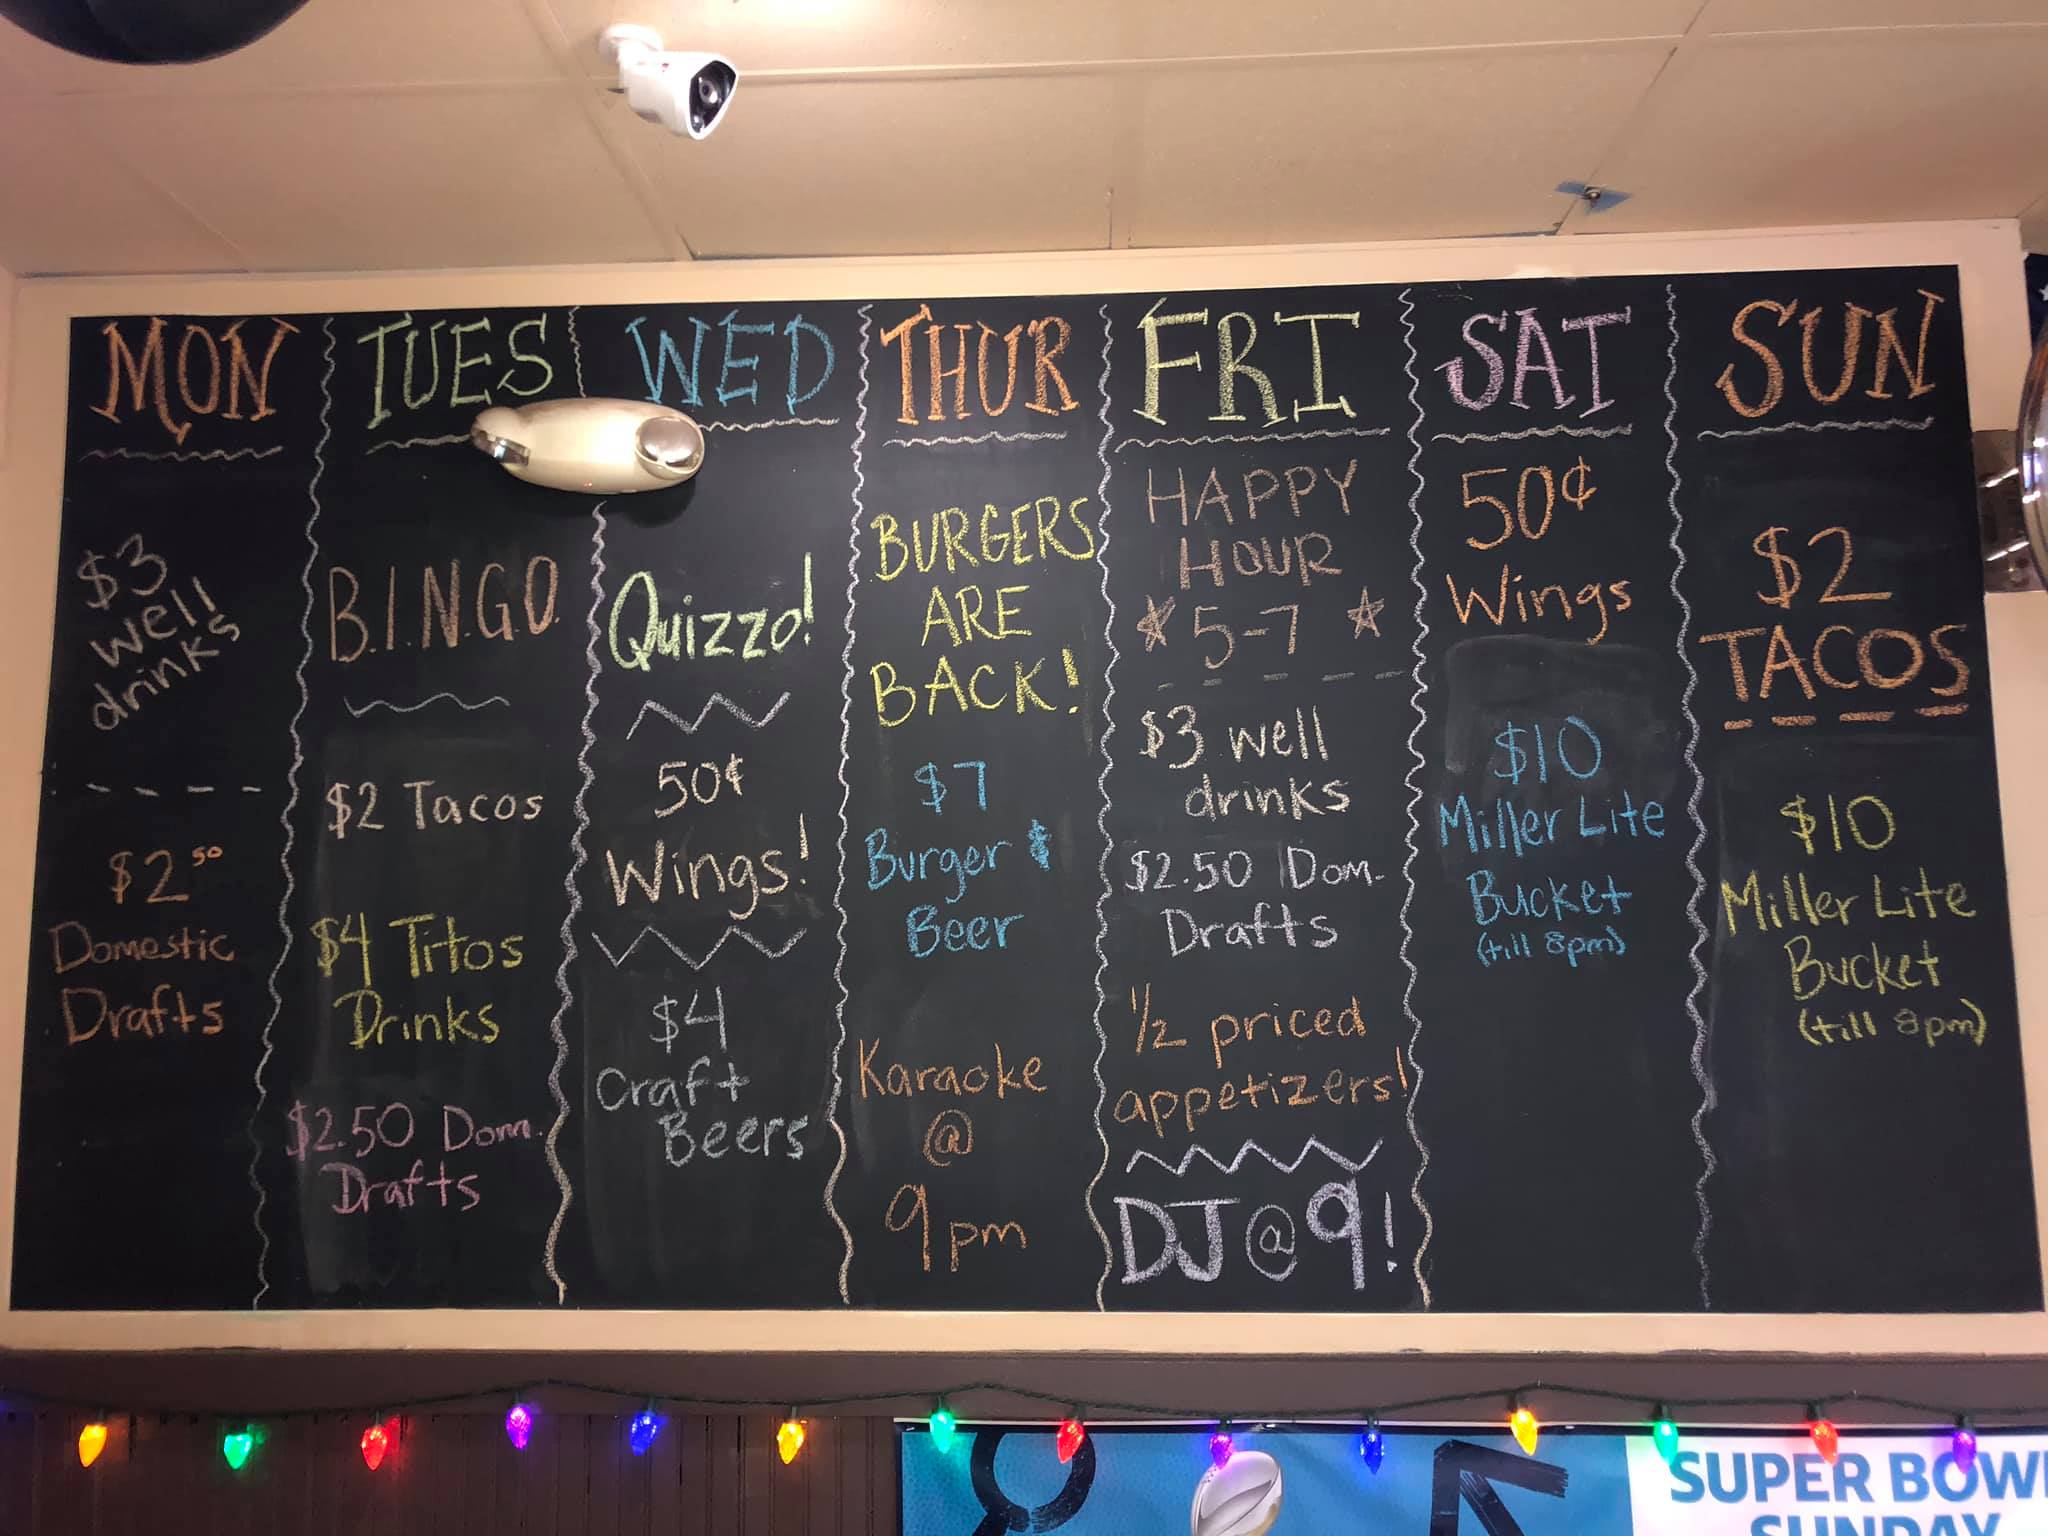 MON
$3
well
drinks
$2.50
Domestic
Drafts
TUES
B.I.N.G.O.
$2 Tacos
$4 Titos
Drinks
$2.50 Dom.
Drafts
WED
Quizzo!
50¢
Wings!
$4
Craft
Beers
THUR
BURGERS
ARE
BACK!
$7
Burger &
Beer
Karaoke
@
9pm
FRI
HAPPY
HOUR
★ 5-7 ★
$3 well
drinks
$2.50 Dom.
Drafts
1/2 priced
appetizers!
DJ @ 9!
SAT
50¢
Wings
$10
Miller Lite
Bucket
(till 8pm)
SUN
$2
TACOS
$10
Miller Lite
Bucket
(till 8pm)
SUPER BOWL
SUNDAY